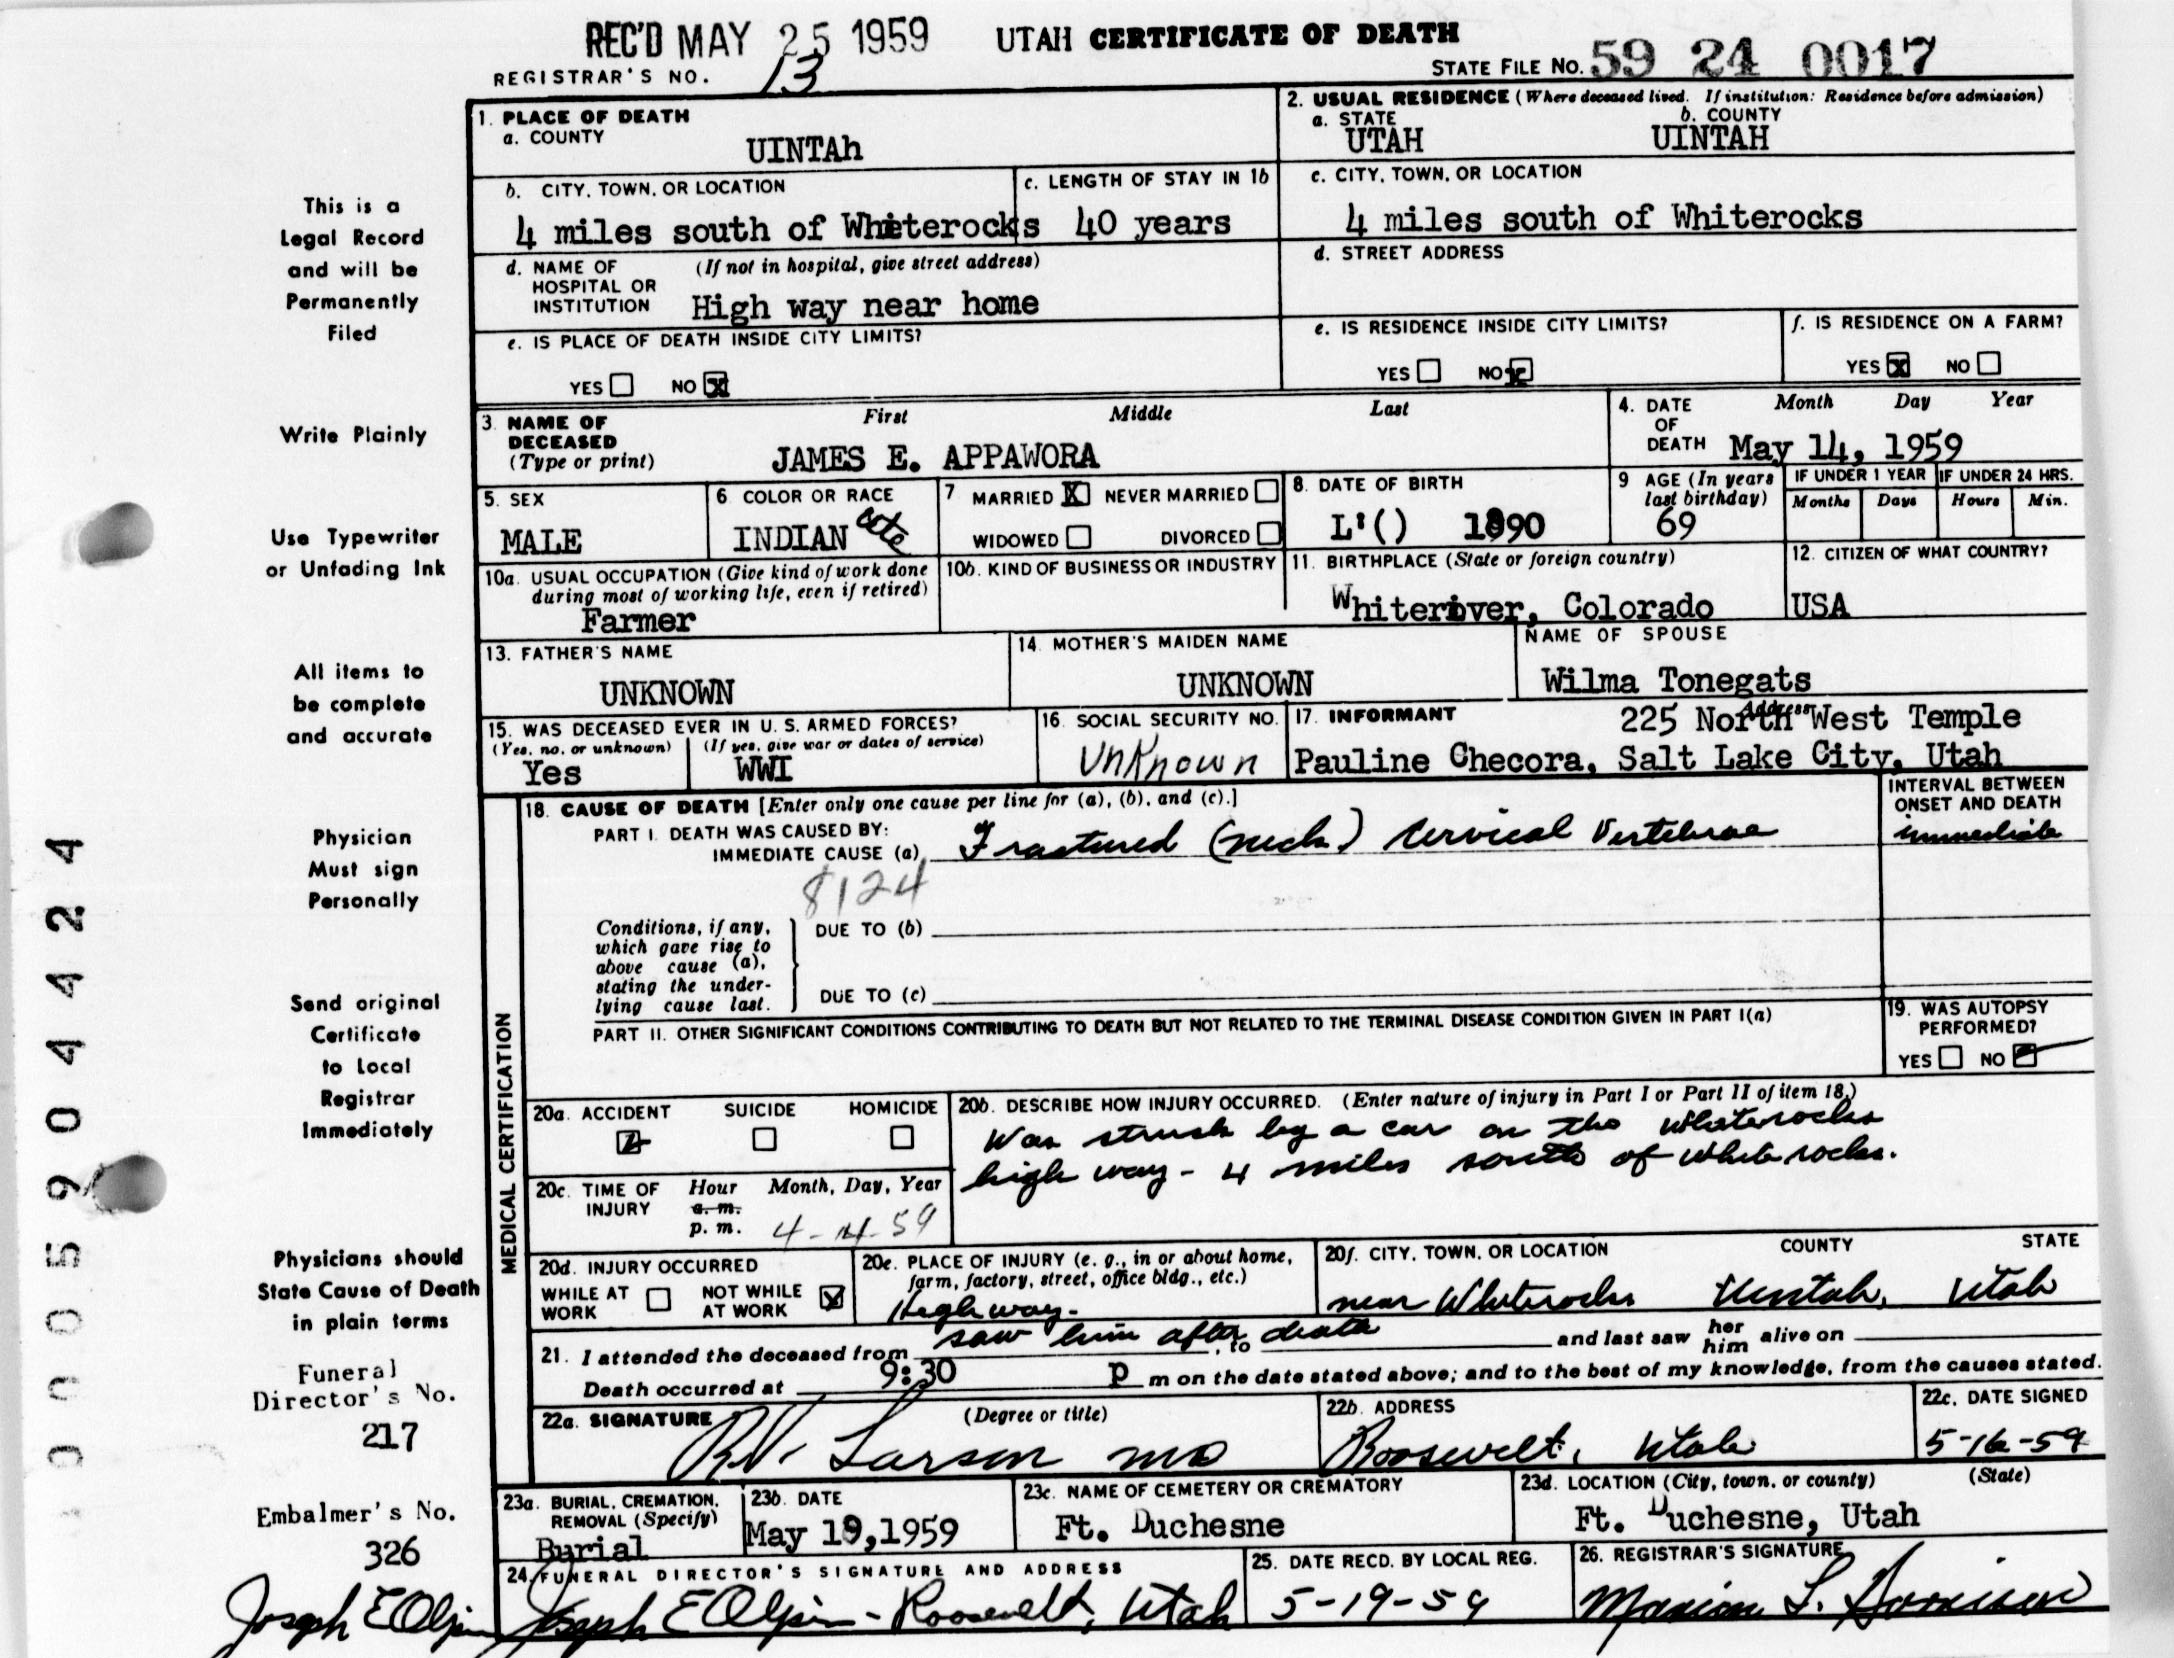 REC'D MAY 25 1959
UTAH CERTIFICATE OF DEATH
REGISTRAR'S NO. 13
STATE FILE NO. 59 24 0017
1. PLACE OF DEATH
a. COUNTY
UINTAh
2. USUAL RESIDENCE (Where deceased lived. If institution: Residence before admission)
a. STATE
UTAH
b. COUNTY
UINTAH
b. CITY, TOWN, OR LOCATION
4 miles south of Whiterocks
c. LENGTH OF STAY IN 1b
40 years
c. CITY, TOWN, OR LOCATION
4 miles south of Whiterocks
d. NAME OF HOSPITAL OR INSTITUTION
(If not in hospital, give street address)
High way near home
d. STREET ADDRESS
e. IS PLACE OF DEATH INSIDE CITY LIMITS?
YES NO X
e. IS RESIDENCE INSIDE CITY LIMITS?
YES NO X
f. IS RESIDENCE ON A FARM?
YES X NO
3. NAME OF DECEASED
(Type or print)
First Middle Last
JAMES E. APPAWORA
4. DATE OF DEATH
Month Day Year
May 14, 1959
5. SEX
MALE
6. COLOR OR RACE
INDIAN Ute
7 MARRIED X NEVER MARRIED
WIDOWED DIVORCED
8. DATE OF BIRTH
L'() 1890
9 AGE (In years last birthday)
69
IF UNDER 1 YEAR
Months Days
IF UNDER 24 HRS.
Hours Min.
10a. USUAL OCCUPATION (Give kind of work done during most of working life, even if retired)
Farmer
10b. KIND OF BUSINESS OR INDUSTRY
11. BIRTHPLACE (State or foreign country)
Whiteriver, Colorado
12. CITIZEN OF WHAT COUNTRY?
USA
13. FATHER'S NAME
UNKNOWN
14. MOTHER'S MAIDEN NAME
UNKNOWN
NAME OF SPOUSE
Wilma Tonegats
15. WAS DECEASED EVER IN U. S. ARMED FORCES?
(Yes, no, or unknown) (If yes, give war or dates of service)
Yes WWI
16. SOCIAL SECURITY NO.
UnKnown
17. INFORMANT Address
225 North West Temple
Pauline Checora, Salt Lake City, Utah
18. CAUSE OF DEATH [Enter only one cause per line for (a), (b), and (c).]
INTERVAL BETWEEN ONSET AND DEATH
PART I. DEATH WAS CAUSED BY:
IMMEDIATE CAUSE (a) Fractured (neck) Cervical Vertebrae
immediate
8124
Conditions, if any, which gave rise to above cause (a), stating the underlying cause last.
DUE TO (b)
DUE TO (c)
PART II. OTHER SIGNIFICANT CONDITIONS CONTRIBUTING TO DEATH BUT NOT RELATED TO THE TERMINAL DISEASE CONDITION GIVEN IN PART I(a)
19. WAS AUTOPSY PERFORMED?
YES NO
MEDICAL CERTIFICATION
20a. ACCIDENT SUICIDE HOMICIDE
20b. DESCRIBE HOW INJURY OCCURRED. (Enter nature of injury in Part I or Part II of item 18.)
Was struck by a car on the Whiterocks
high way - 4 miles south of Whiterocks.
20c. TIME OF INJURY
Hour Month, Day, Year
a. m.
p. m. 4-14-59
20d. INJURY OCCURRED
WHILE AT WORK NOT WHILE AT WORK X
20e. PLACE OF INJURY (e. g., in or about home, farm, factory, street, office bldg., etc.)
High way.
20f. CITY, TOWN, OR LOCATION COUNTY STATE
near Whiterocks Uintah, Utah
saw him after death
21. I attended the deceased from , to and last saw her him alive on
Death occurred at 9:30 P m on the date stated above; and to the best of my knowledge, from the causes stated.
22a. SIGNATURE (Degree or title)
R.V. Larson MD
22b. ADDRESS
Roosevelt, Utah
22c. DATE SIGNED
5-16-59
23a. BURIAL, CREMATION, REMOVAL (Specify)
Burial
23b. DATE
May 19,1959
23c. NAME OF CEMETERY OR CREMATORY
Ft. Duchesne
23d. LOCATION (City, town, or county) (State)
Ft. Duchesne, Utah
24. FUNERAL DIRECTOR'S SIGNATURE AND ADDRESS
Joseph E Olpin - Roosevelt, Utah
25. DATE RECD. BY LOCAL REG.
5-19-59
26. REGISTRAR'S SIGNATURE
This is a
Legal Record
and will be
Permanently
Filed
Write Plainly
Use Typewriter
or Unfading Ink
All items to
be complete
and accurate
Physician
Must sign
Personally
Send original
Certificate
to Local
Registrar
Immediately
Physicians should
State Cause of Death
in plain terms
Funeral
Director's No.
217
Embalmer's No.
326
Joseph E Olpin
005904424